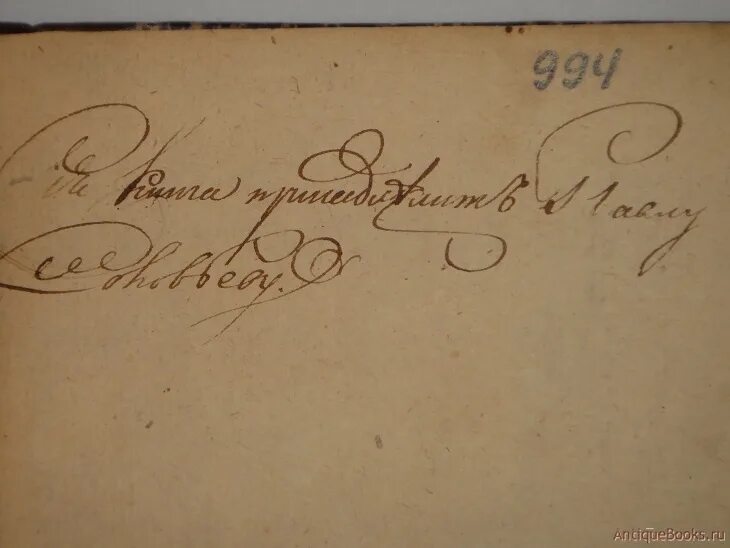 994
Сія книга принадлежитъ Павлу
Соловьеву.
AntiqueBooks.ru